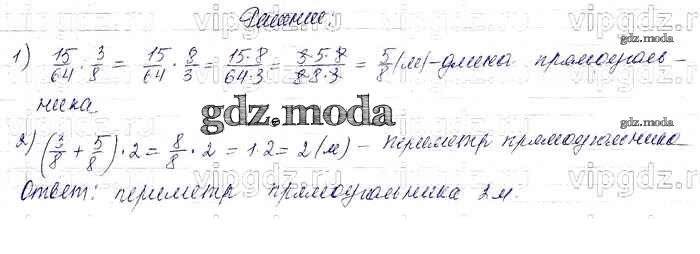 Решение:
1) 15/64 : 3/8 = 15/64 · 8/3 = 15·8/64·3 = 3·5·8/8·8·3 = 5/8 (м) - длина прямоуголь-
ника.
gdz.moda
2) (3/8 + 5/8) · 2 = 8/8 · 2 = 1·2 = 2 (м) - периметр прямоугольника
Ответ: периметр прямоугольника 2 м.
vipgdz.com